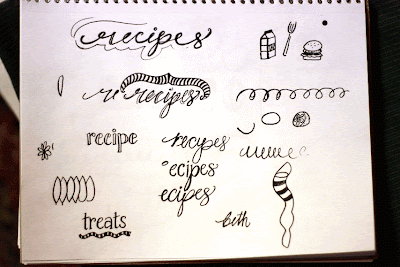 recipes
re recipes
recipe recipes
ecipes
ecipes
treats beth